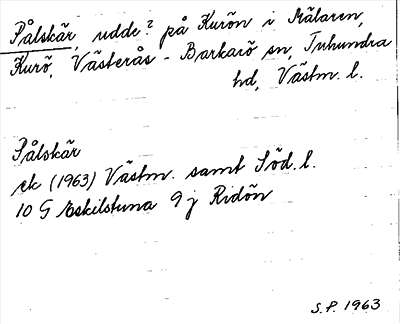 Pålskär, udde? på Kurön i Mälaren,
Kurö, Västerås - Barkarö sn, Tuhundra
hd, Västm. l.
Pålskär
ek (1963) Västm. samt Söd. l.
10 G Eskilstuna 9 j Ridön
S.P. 1963